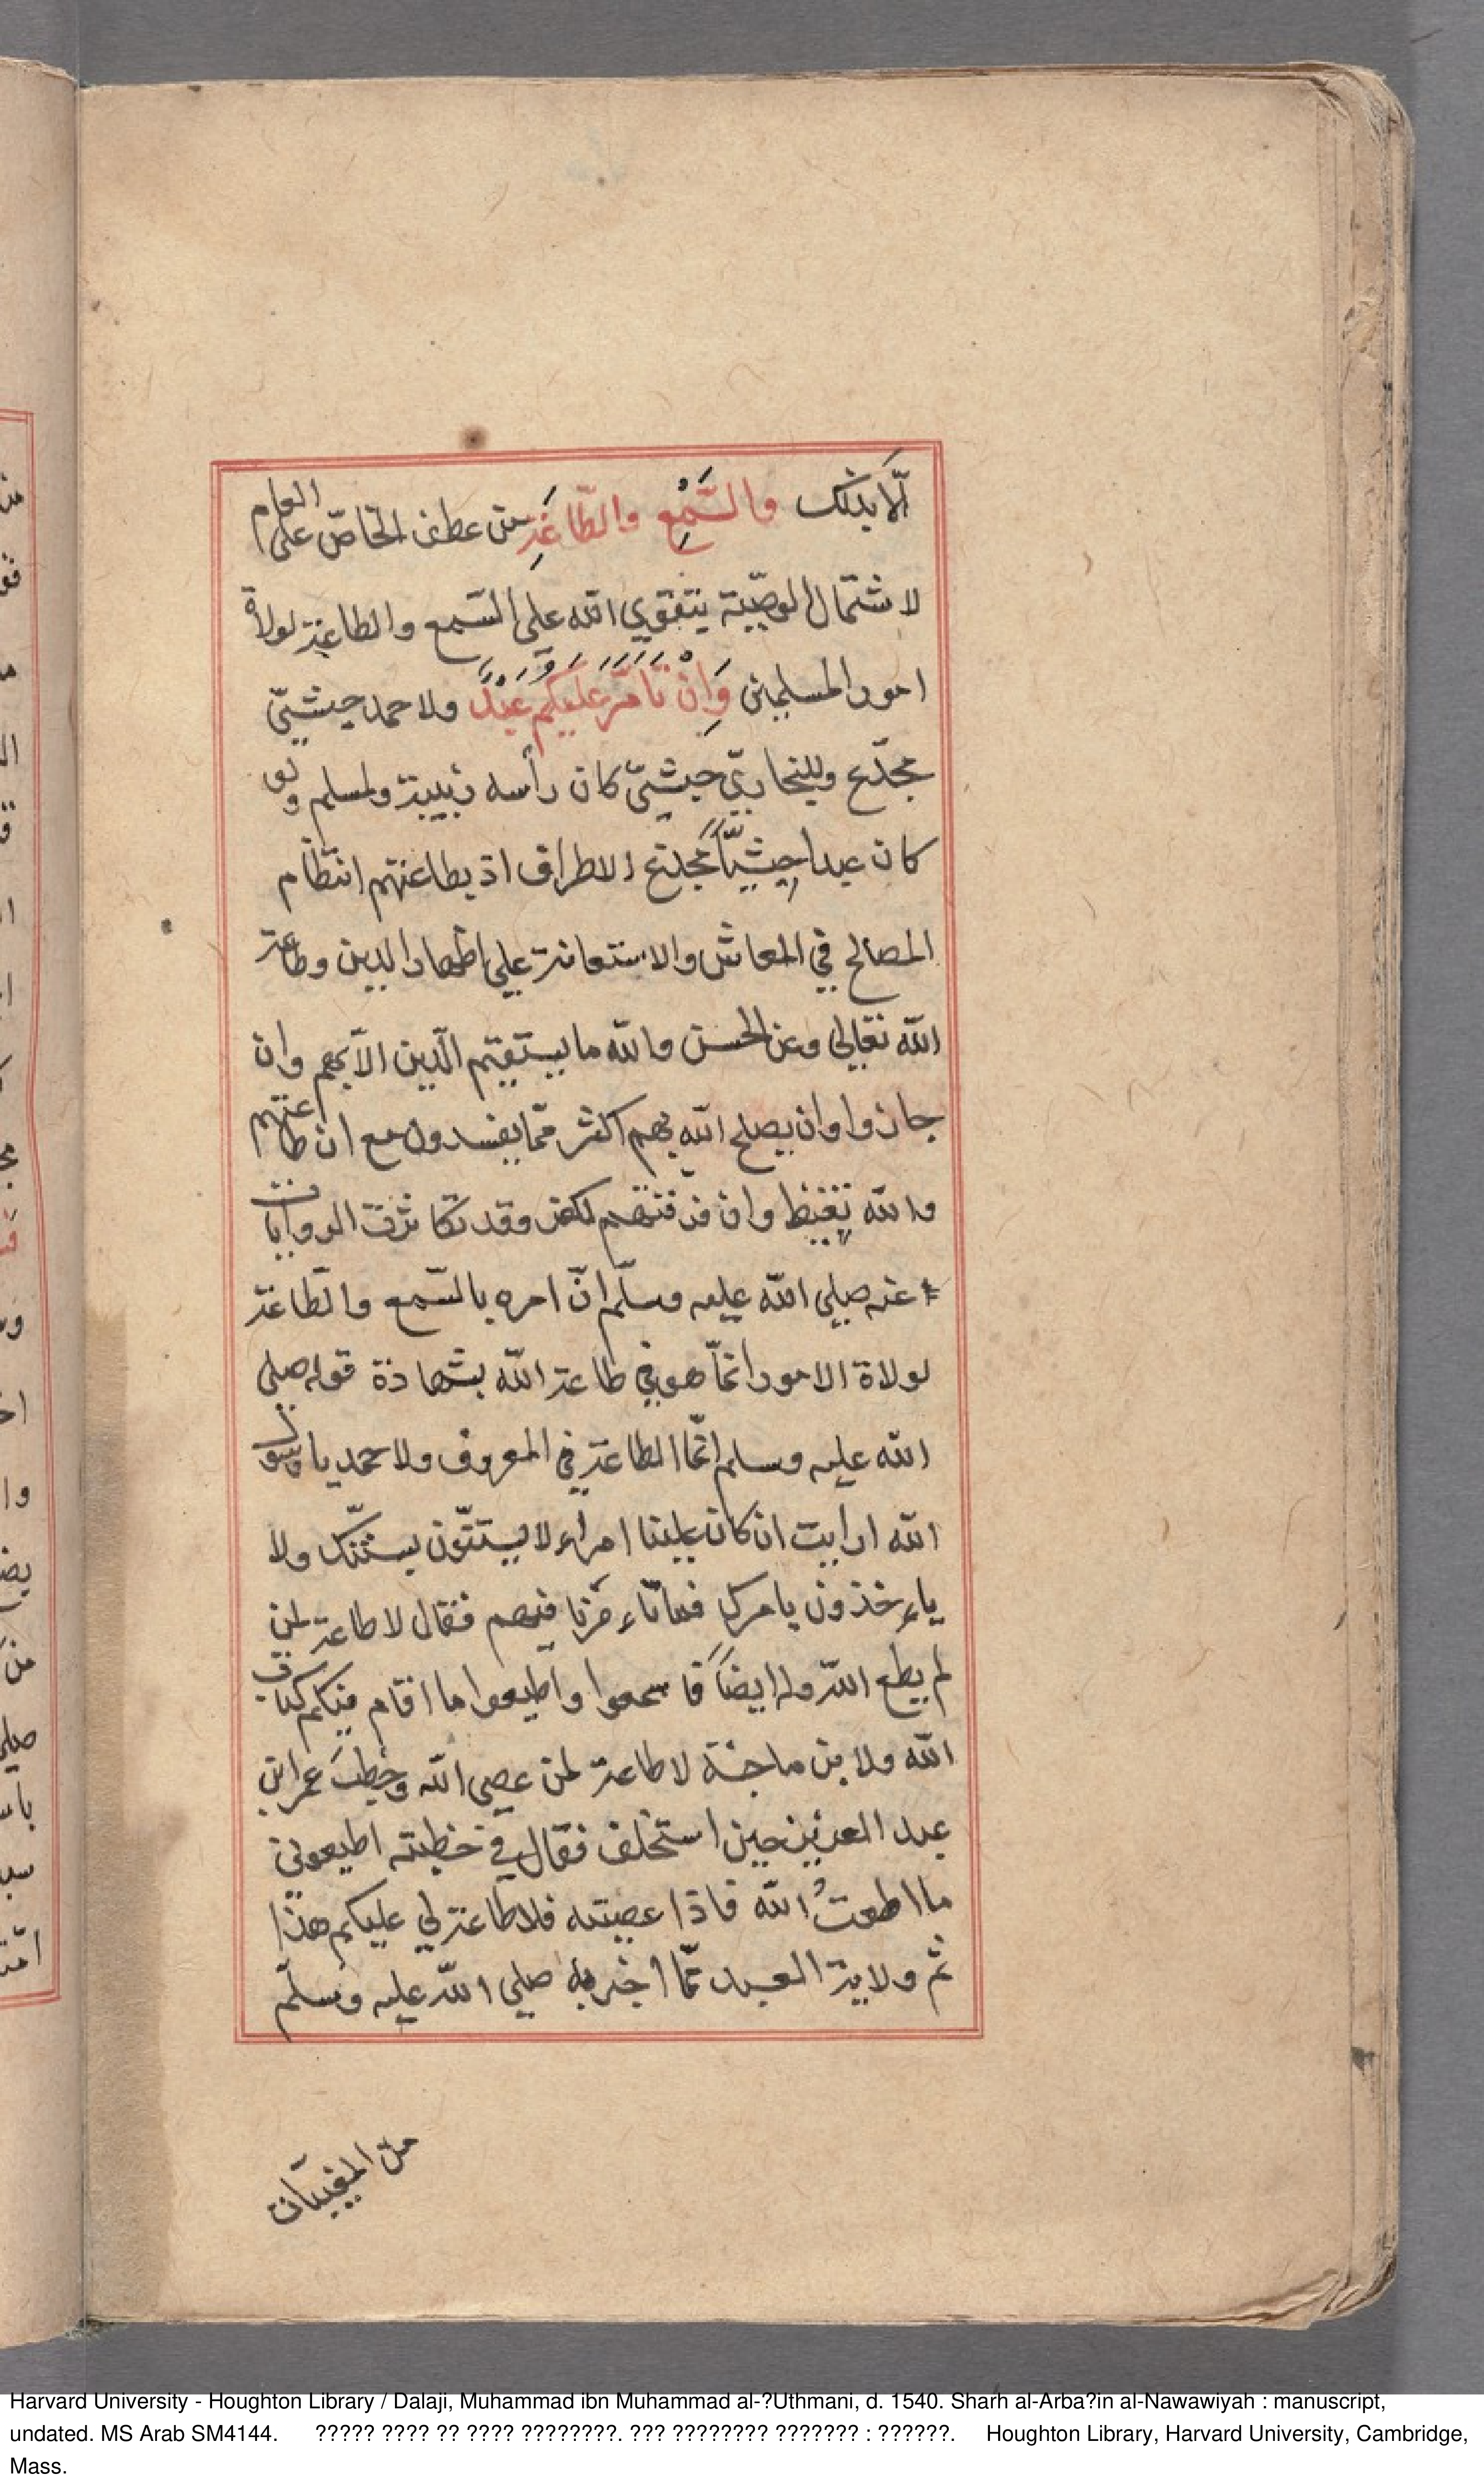 الّا بذلك والسَّمْعِ والطّاعَةِ من عطف الخاصّ على العام
لاشتمال الوصيّة بتقوى الله على السّمع والطاعة لولاة
امور المسلمين وَاِنْ تَأَمَّرَ عَلَيْكُمْ عَبْدٌ ولاحمد حبشيّ
مجدّع وللبخاريّ حبشيّ كان رأسه زبيبة ولمسلم ولو
كان عبدا حبشيّاً مجدّع الاطراف اذ بطاعتهم انتظام
المصالح في المعاش والاستعانة على اظهار الدين وطاعة
الله تعالى وعن الحسن والله ما يستقيم الدّين الّا بهم وان
جاروا وان يصلح الله بهم اكثر ممّا يفسدون مع ان طاعتهم
والله تغيظ وان فرقتهم لكفر وقد تكاثرت الروايات
عنه صلى الله عليه وسلّم انّ امره بالسّمع والطّاعة
لولاة الامور انّما هو في طاعة الله بشهادة قوله صلى
الله عليه وسلم انّما الطاعة في المعروف ولاحمد يا رسول
الله ارايت ان كان علينا امراء لا يستنّون بسنّتك ولا
ياءخذون بامرك فما تاءمرنا فيهم فقال لا طاعة لمن
لم يطع الله وله ايضاً فاسمعوا واطيعوا ما اقام فيكم كتاب
الله ولابن ماجة لا طاعة لمن عصى الله وخطب عمر ابن
عبد العزيز حين استخلف فقال في خطبته اطيعوني
ما اطعتُ الله فاذا عصيته فلا طاعة لي عليكم هذا
ثم ولاية العبد ممّا اخبر به صلى الله عليه وسلّم
من المغيبات
Harvard University - Houghton Library / Dalaji, Muhammad ibn Muhammad al-?Uthmani, d. 1540. Sharh al-Arba?in al-Nawawiyah : manuscript,
undated. MS Arab SM4144. ????? ???? ?? ???? ????????. ??? ???????? ??????? : ??????. Houghton Library, Harvard University, Cambridge,
Mass.